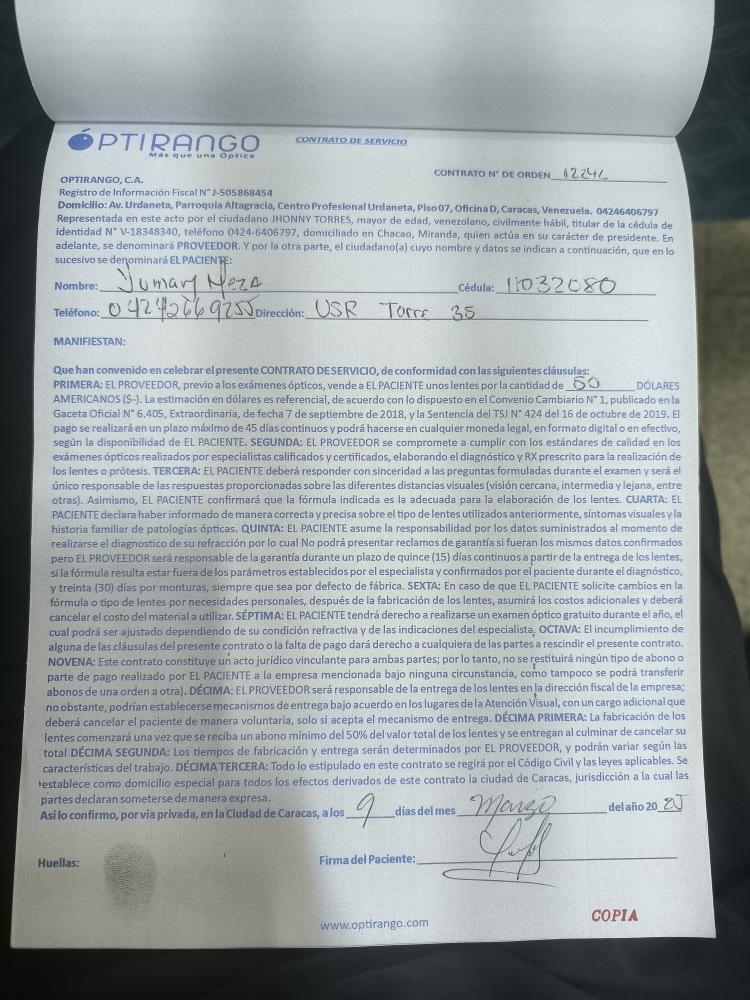 ÓPTIRANGO
Más que una Óptica
CONTRATO DE SERVICIO
CONTRATO N° DE ORDEN
OPTIRANGO, C.A.
Registro de Información Fiscal N° J-505868454
Domicilio: Av. Urdaneta, Parroquia Altagracia, Centro Profesional Urdaneta, Piso 07, Oficina D, Caracas, Venezuela. 04246406797
Representada en este acto por el ciudadano JHONNY TORRES, mayor de edad, venezolano, civilmente hábil, titular de la cédula de
identidad N° V-18348340, teléfono 0424-6406797, domiciliado en Chacao, Miranda, quien actúa en su carácter de presidente. En
adelante, se denominará PROVEEDOR. Y por la otra parte, el ciudadano(a) cuyo nombre y datos se indican a continuación, que en lo
sucesivo se denominará EL PACIENTE:
Nombre: Yumary Meza Cédula: 11032080
Teléfono: 04242669255 Dirección: USR Torre 35
MANIFIESTAN:
Que han convenido en celebrar el presente CONTRATO DE SERVICIO, de conformidad con las siguientes cláusulas:
PRIMERA: EL PROVEEDOR, previo a los exámenes ópticos, vende a EL PACIENTE unos lentes por la cantidad de 50 DÓLARES
AMERICANOS ($-). La estimación en dólares es referencial, de acuerdo con lo dispuesto en el Convenio Cambiario N° 1, publicado en la
Gaceta Oficial N° 6.405, Extraordinaria, de fecha 7 de septiembre de 2018, y la Sentencia del TSJ N° 424 del 16 de octubre de 2019. El
pago se realizará en un plazo máximo de 45 días continuos y podrá hacerse en cualquier moneda legal, en formato digital o en efectivo,
según la disponibilidad de EL PACIENTE. SEGUNDA: EL PROVEEDOR se compromete a cumplir con los estándares de calidad en los
exámenes ópticos realizados por especialistas calificados y certificados, elaborando el diagnóstico y RX prescrito para la realización de
los lentes o prótesis. TERCERA: EL PACIENTE deberá responder con sinceridad a las preguntas formuladas durante el examen y será el
único responsable de las respuestas proporcionadas sobre las diferentes distancias visuales (visión cercana, intermedia y lejana, entre
otras). Asimismo, EL PACIENTE confirmará que la fórmula indicada es la adecuada para la elaboración de los lentes. CUARTA: EL
PACIENTE declara haber informado de manera correcta y precisa sobre el tipo de lentes utilizados anteriormente, síntomas visuales y la
historia familiar de patologías ópticas. QUINTA: EL PACIENTE asume la responsabilidad por los datos suministrados al momento de
realizarse el diagnostico de su refracción por lo cual No podrá presentar reclamos de garantía si fueran los mismos datos confirmados
pero EL PROVEEDOR será responsable de la garantía durante un plazo de quince (15) días continuos a partir de la entrega de los lentes,
si la fórmula resulta estar fuera de los parámetros establecidos por el especialista y confirmados por el paciente durante el diagnóstico,
y treinta (30) días por monturas, siempre que sea por defecto de fábrica. SEXTA: En caso de que EL PACIENTE solicite cambios en la
fórmula o tipo de lentes por necesidades personales, después de la fabricación de los lentes, asumirá los costos adicionales y deberá
cancelar el costo del material a utilizar. SÉPTIMA: EL PACIENTE tendrá derecho a realizarse un examen óptico gratuito durante el año, el
cual podrá ser ajustado dependiendo de su condición refractiva y de las indicaciones del especialista. OCTAVA: El incumplimiento de
alguna de las cláusulas del presente contrato o la falta de pago dará derecho a cualquiera de las partes a rescindir el presente contrato.
NOVENA: Este contrato constituye un acto jurídico vinculante para ambas partes; por lo tanto, no se restituirá ningún tipo de abono o
parte de pago realizado por EL PACIENTE a la empresa mencionada bajo ninguna circunstancia, como tampoco se podrá transferir
abonos de una orden a otra). DÉCIMA: EL PROVEEDOR será responsable de la entrega de los lentes en la dirección fiscal de la empresa;
no obstante, podrían establecerse mecanismos de entrega bajo acuerdo en los lugares de la Atención Visual, con un cargo adicional que
deberá cancelar el paciente de manera voluntaria, solo si acepta el mecanismo de entrega. DÉCIMA PRIMERA: La fabricación de los
lentes comenzará una vez que se reciba un abono mínimo del 50% del valor total de los lentes y se entregan al culminar de cancelar su
total DÉCIMA SEGUNDA: Los tiempos de fabricación y entrega serán determinados por EL PROVEEDOR, y podrán variar según las
características del trabajo. DÉCIMA TERCERA: Todo lo estipulado en este contrato se regirá por el Código Civil y las leyes aplicables. Se
establece como domicilio especial para todos los efectos derivados de este contrato la ciudad de Caracas, jurisdicción a la cual las
partes declaran someterse de manera expresa.
Así lo confirmo, por vía privada, en la Ciudad de Caracas, a los 9 días del mes Marzo del año 20 25
Huellas:
Firma del Paciente:
www.optirango.com
COPIA